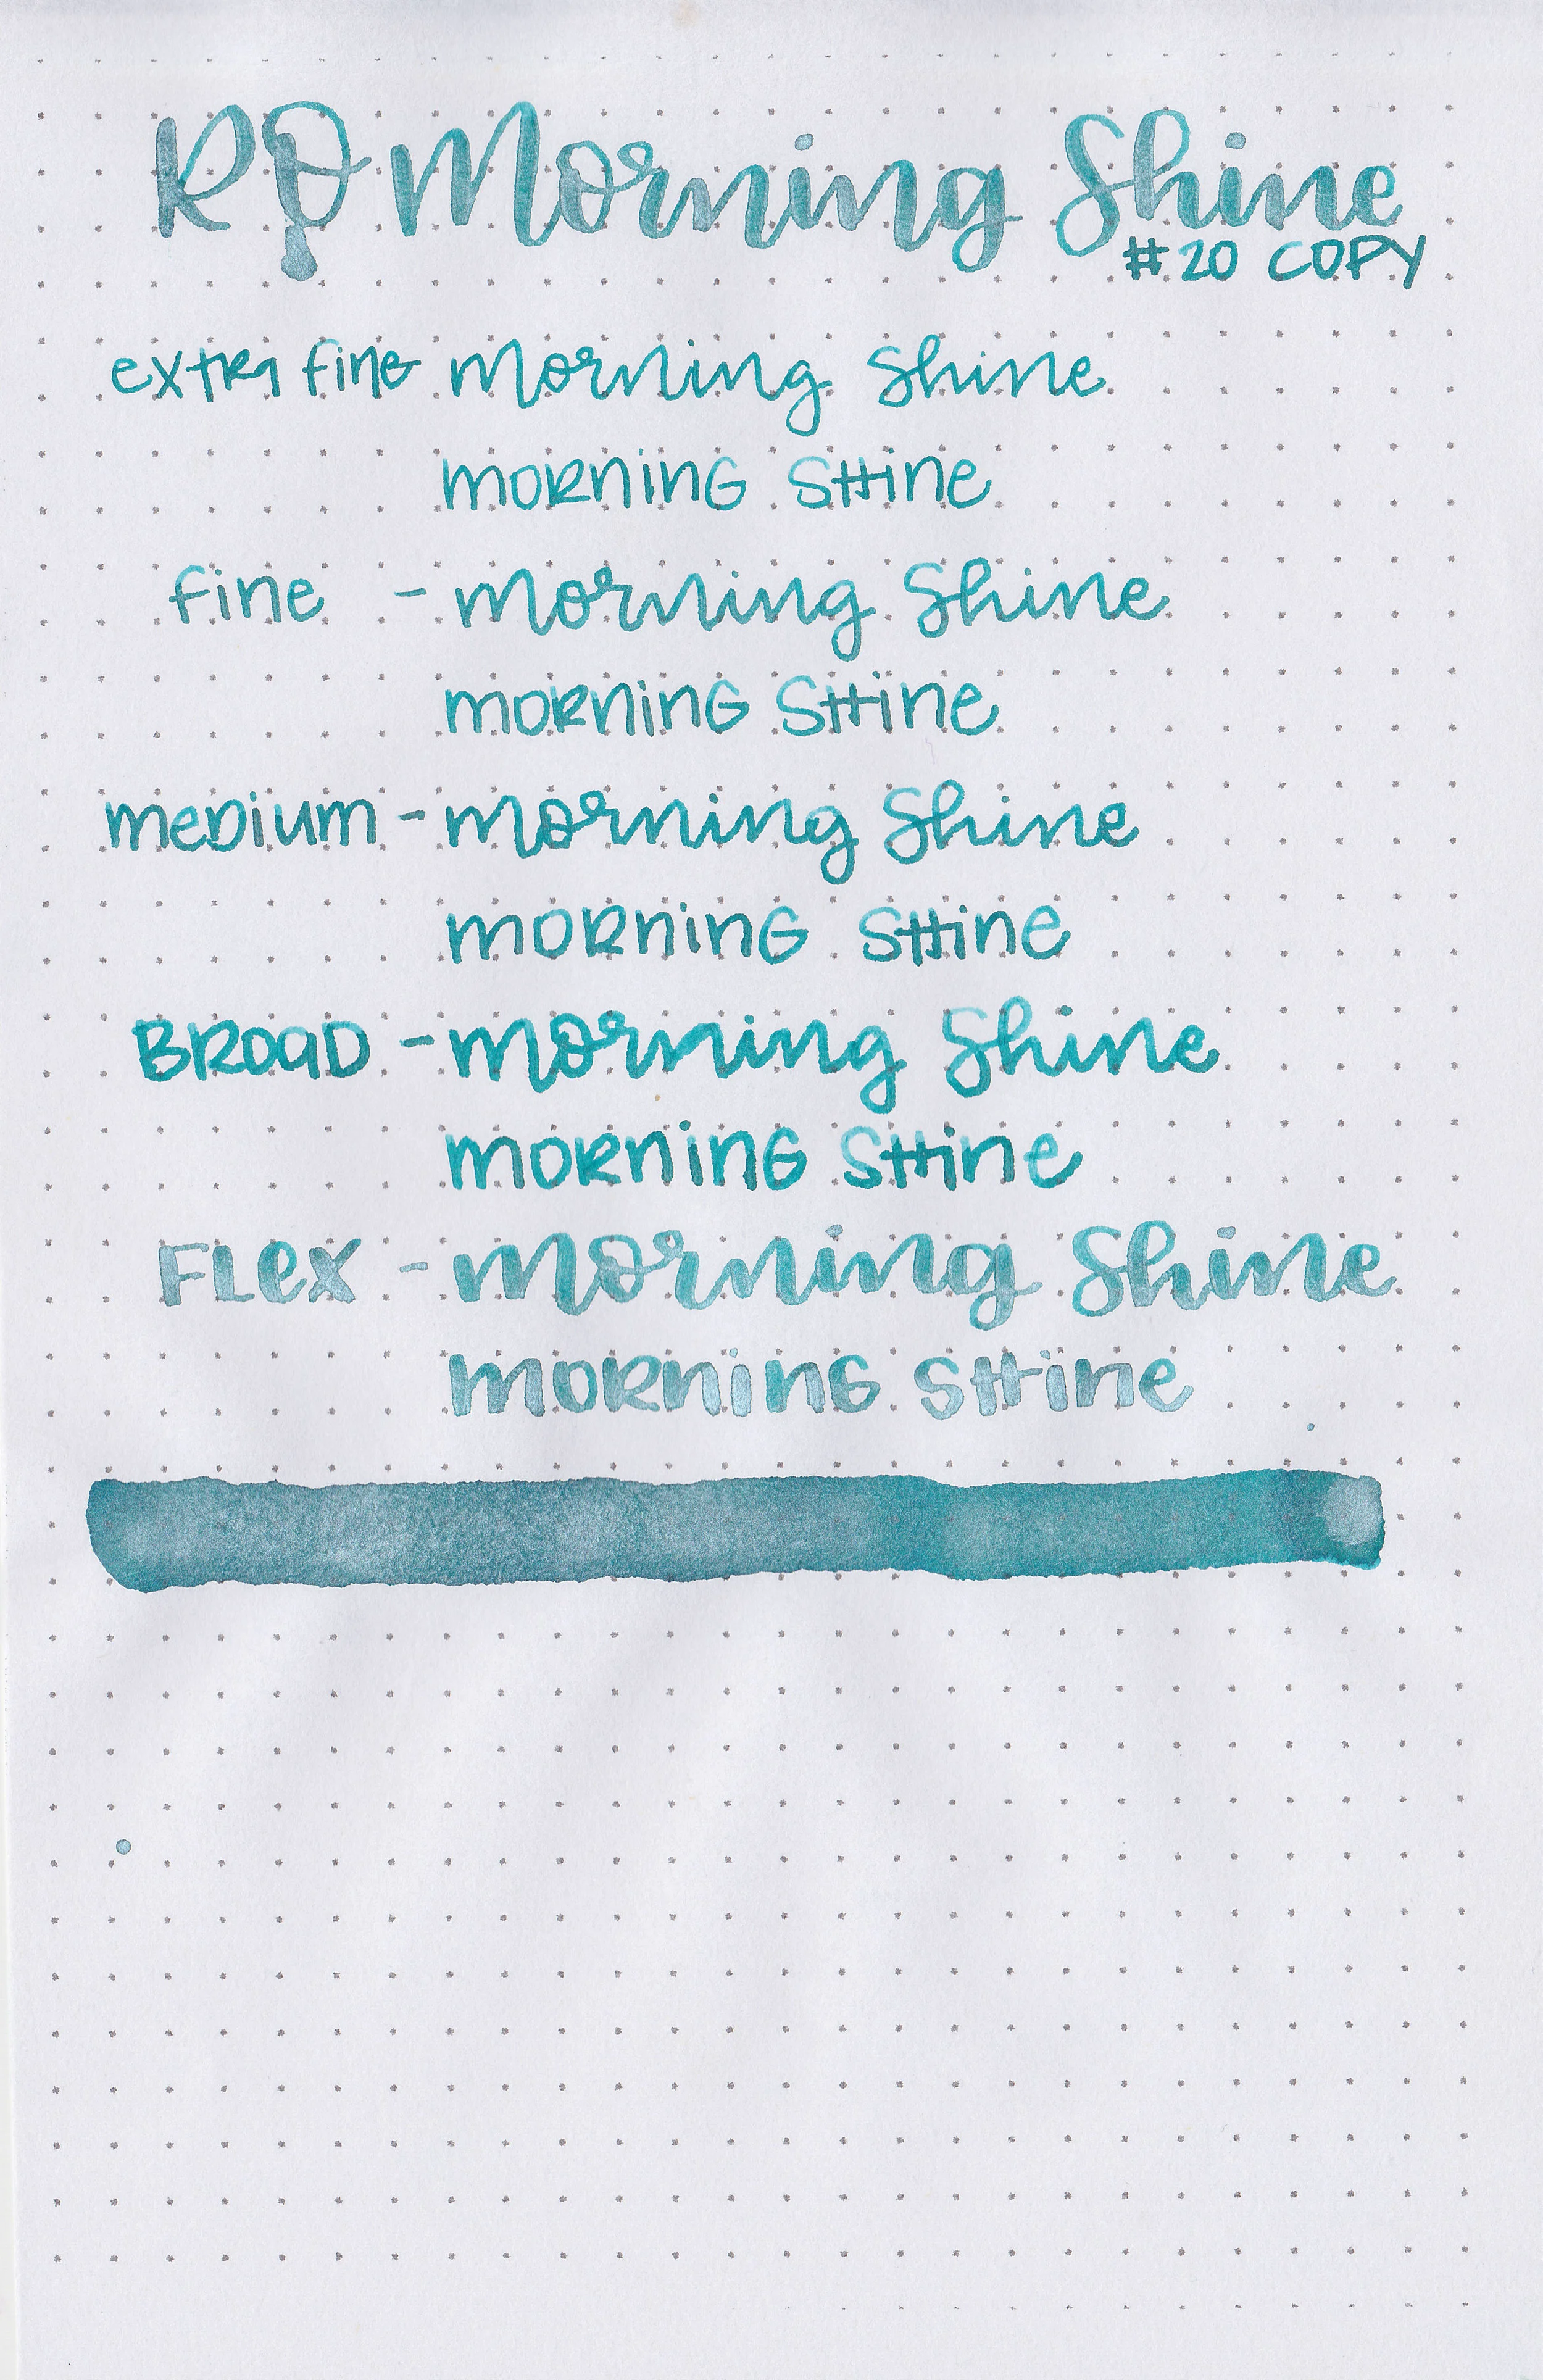 RO Morning Shine
#20 COPY
extra fine morning Shine
morning shine
fine - morning Shine
morning shine
medium - morning Shine
morning shine
Broad - morning Shine
morning shine
Flex - morning Shine
morning shine